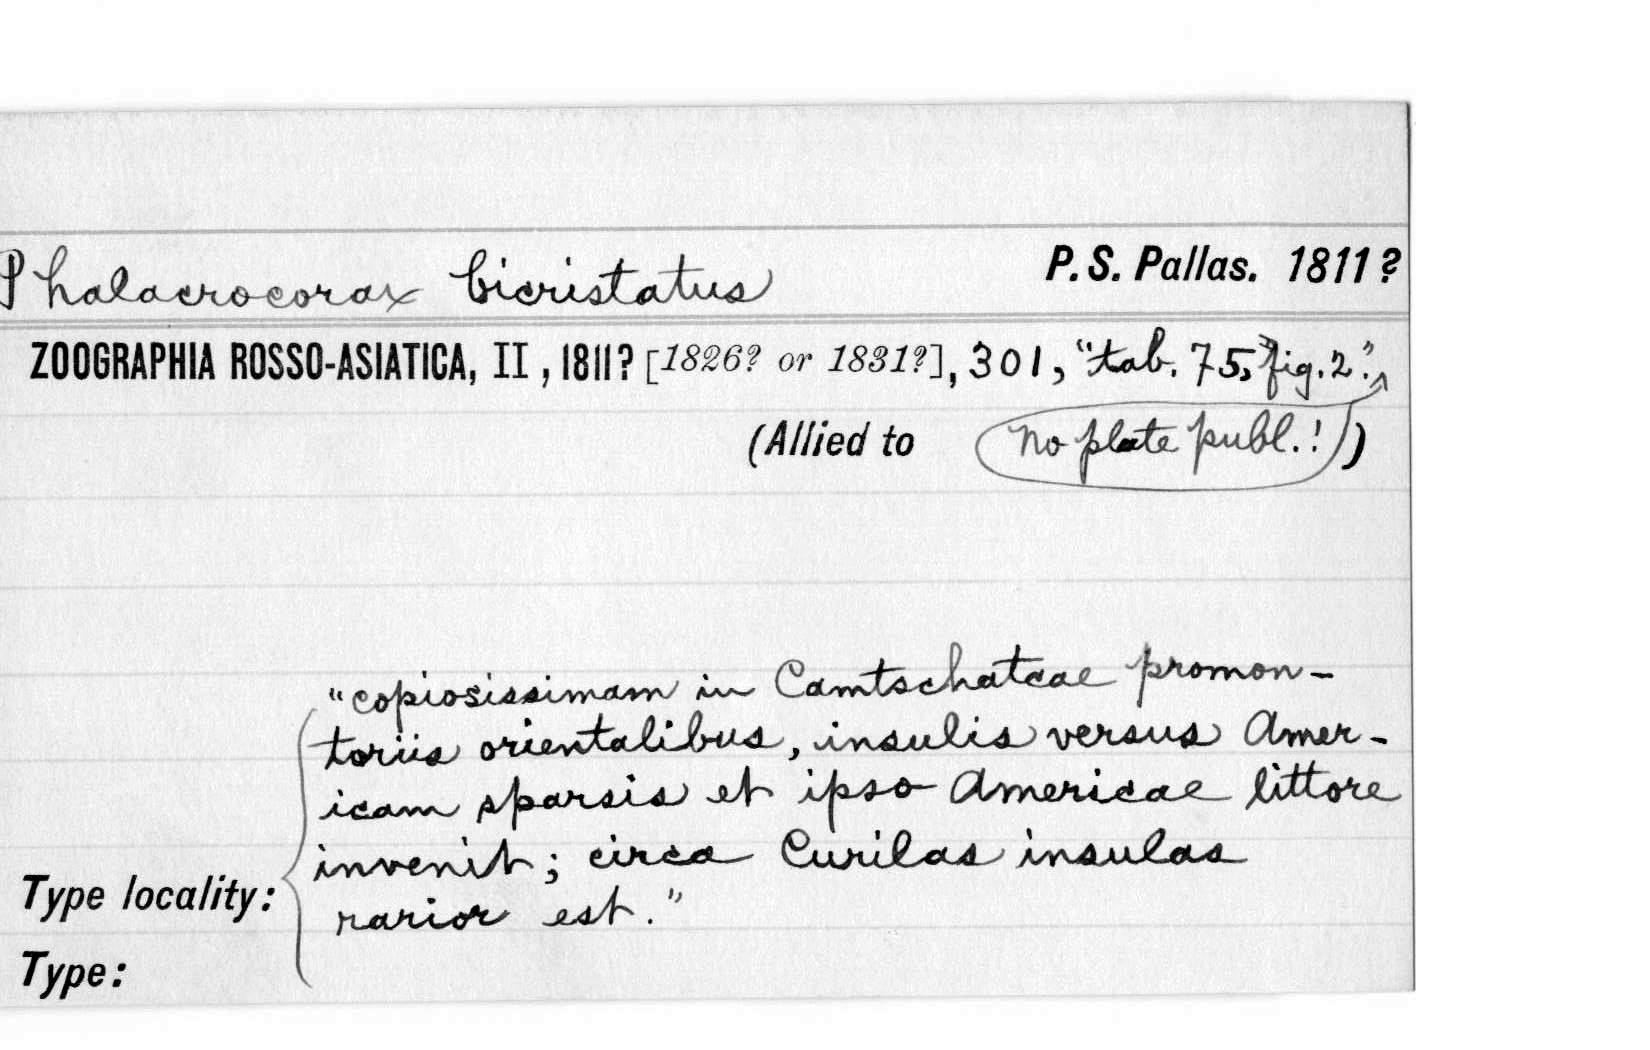 Phalacrocorax bicristatus P. S. Pallas. 1811?
ZOOGRAPHIA ROSSO-ASIATICA, II, 1811? [1826? or 1831?], 301, "tab. 75, fig. 2".
(Allied to no plate publ.!)
"copiosissimam in Camtschatcae promon-
toriis orientalibus, insulis versus Amer-
icam sparsis et ipso Americae littore
invenit; circa Curilas insulas
Type locality: rarior est."
Type: